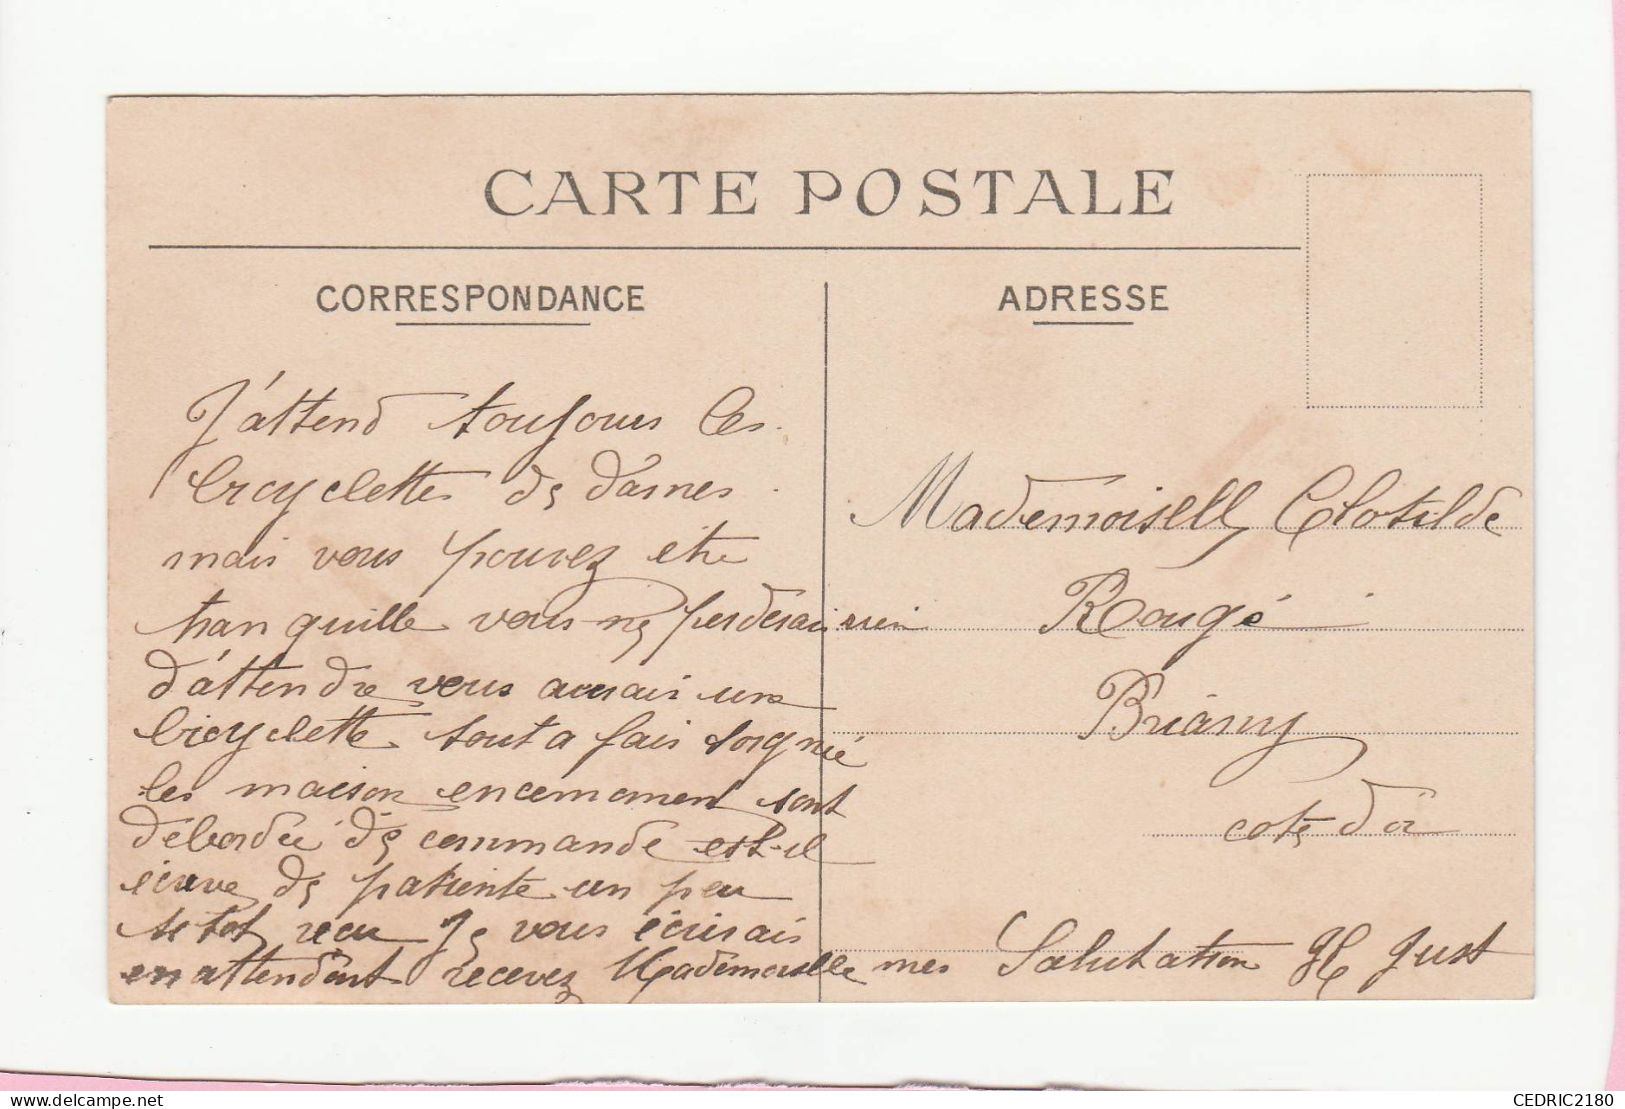 CARTE POSTALE
CORRESPONDANCE
ADRESSE
J'attend toujours les
bicyclettes de dames
mais vous pouvez etre
tranquille vous ne perderais rien
d'attendre vous aurais une
bicyclette tout a fais soignié
les maison encemoment sont
débordée de commande est-il
de patiente un peu
setot recu Je vous écrirais
en attendent recevez Mademoiselle mes Salutation H Just
Mademoiselle Clotilde
Rougé
Briany
cote d'or
CEDRIC2180